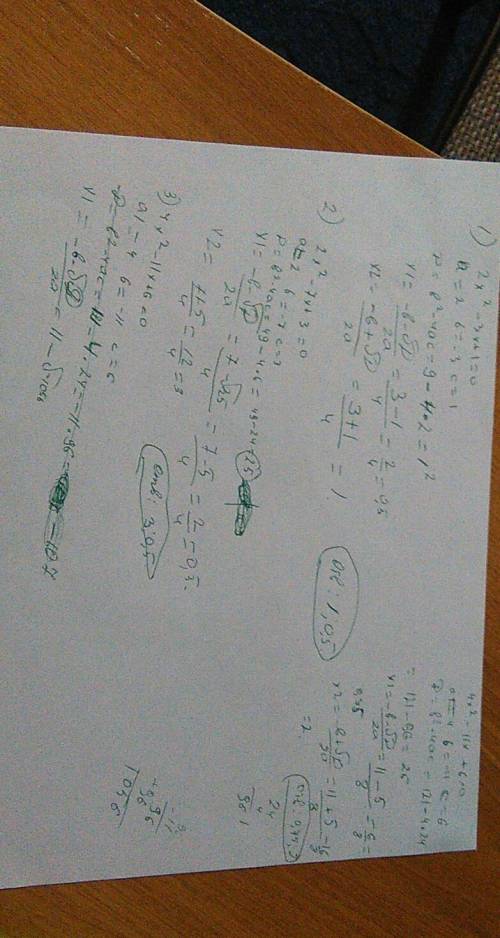 1)
2x² - 3x + 1 = 0
a = 2 b = -3 c = 1
D = b² - 4ac = 9 - 4·2 = 1²
x1 = (-b - √D)/2a = (3 - 1)/4 = 2/4 = 0,5
x2 = (-b + √D)/2a = (3 + 1)/4 = 1
Отв: 1; 0,5
2)
2x² - 7x + 3 = 0
a = 2 b = -7 c = 3
D = b² - 4ac = 49 - 4·6 = 49 - 24 = 25
x1 = (-b - √D)/2a = (7 - √25)/4 = (7 - 5)/4 = 2/4 = 0,5
x2 = (7 + 5)/4 = 12/4 = 3
Отв: 3; 0,5
3) 4x² - 11x + 6 = 0
a = 4 b = -11 c = 6
D = b² - 4ac = 11 - 4·24 = 11 - 96
x1 = (-b - √D)/2a = 11 -
4x² - 11x + 6 = 0
a = 4 b = -11 c = 6
D = b² - 4ac = 121 - 4·24
= 121 - 96 = 25
x1 = (-b - √D)/2a = (11 - 5)/8 = 6/8 =
x2 = (-b + √D)/2a = (11 + 5)/8 = 16/8
= 2